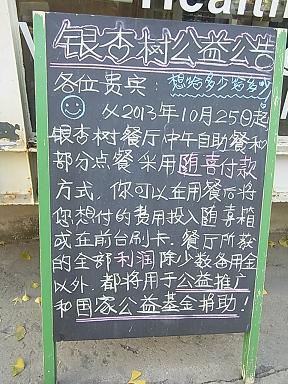 health
银杏树公益公告
各位贵宾：想给多少给多少！
从2013年10月25日起
银杏树餐厅中午自助餐和
部分点餐采用随喜付款
方式，你可以在用餐后将
您想付的费用投入随喜箱
或在前台刷卡．餐厅所收
的全部利润除少数备用金
以外，都将用于公益推广
和国家公益基金捐助！